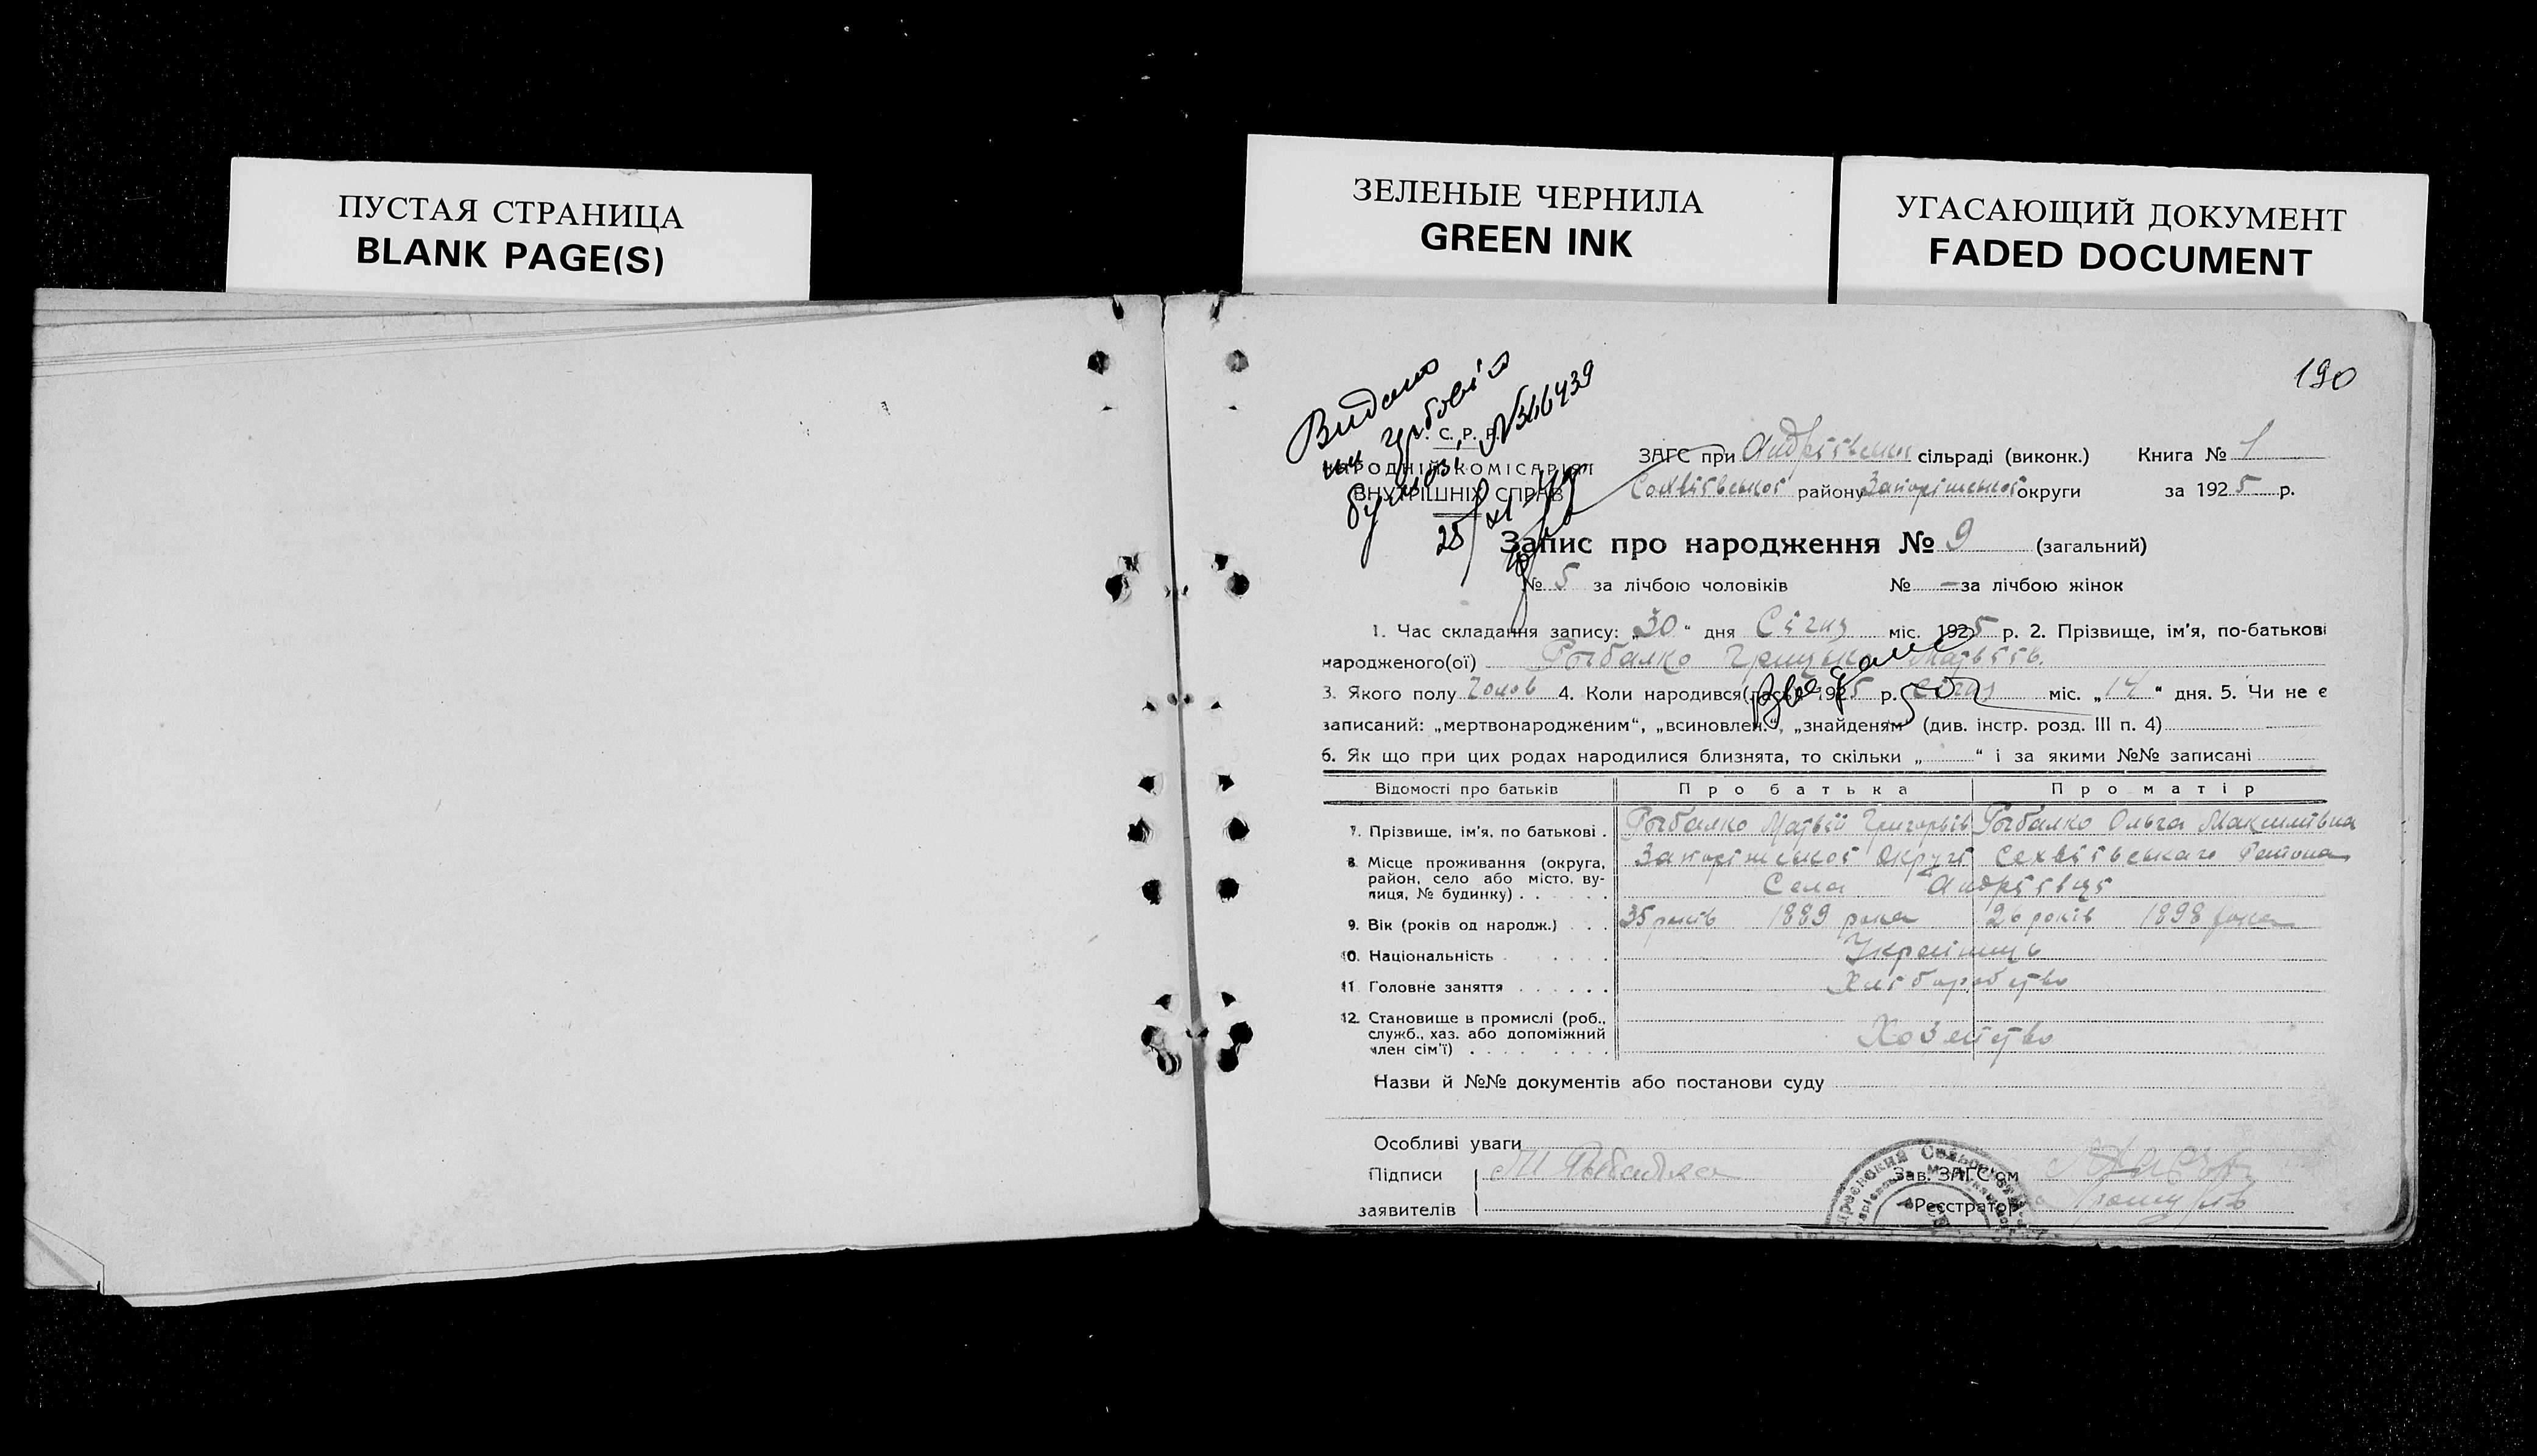 ПУСТАЯ СТРАНИЦА
BLANK PAGE(S)
ЗЕЛЕНЫЕ ЧЕРНИЛА
GREEN INK
УГАСАЮЩИЙ ДОКУМЕНТ
FADED DOCUMENT
190
Видано
№ 366439
С. Р. Р.
НАРОДНІЙ КОМІСАРІЯТ
ВНУТРІШНІХ СПРАВ
25/XI
ЗАГС при Андріївський сільраді (виконк.) Книга № 1
району Запоріжської округи за 1925 р.
Запис про народження № 9 (загальний)
№ 5 за лічбою чоловіків № — за лічбою жінок
1. Час складання запису: „30“ дня Січня міс. 1925 р. 2. Прізвище, ім'я, по-батькові
народженого(ої) Рыбалко Грицько Матвіїв.
3. Якого полу Чолов 4. Коли народився(лась) 1925 р. Січня міс. „14“ дня. 5. Чи не є
записаний: „мертвонародженим“, „всиновлен.“, „знайденям“ (див. інстр. розд. III п. 4)
6. Як що при цих родах народилися близнята, то скільки „ “ і за якими №№ записані
Відомості про батьків Про батька Про матір
7. Прізвище, ім'я, по батькові . Рыбалко Матвій Григорьів Рыбалко Ольга Максимівна
8. Місце проживання (округа, район, село або місто, вулиця, № будинку) Запоріжської Округі Района
Села Андріївці
9. Вік (років од народж.) 35 років 1889 рока 26 років 1898 рока
10. Національність Українць
11. Головне заняття Хліборобство
12. Становище в промислі (роб.,
служб., хаз. або допоміжний
член сім'ї) Хозяйство
Назви й №№ документів або постанови суду
Особливі уваги
Підписи М Рыбалка Зав. ЗАГС'ом
заявителів Реєстратор